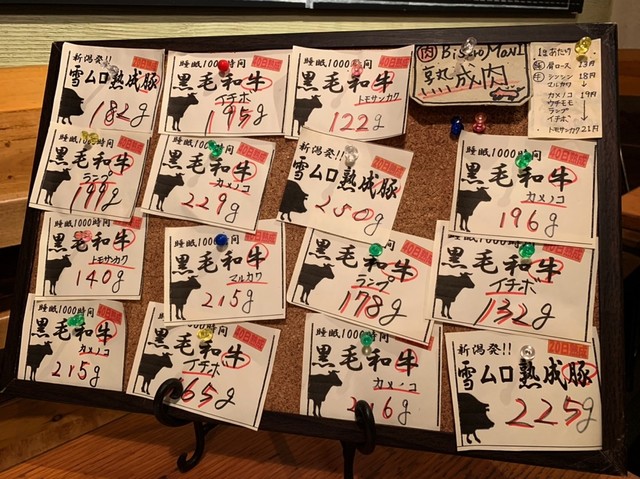 新潟発!!
雪ムロ熟成豚
182g
睡眠1000時間
40日熟成
黒毛和牛
イチボ
195g
睡眠1000時間
40日熟成
黒毛和牛
トモサンカク
122g
肉 Bistro MoNI
熟成肉
1gあたり
豚 肩ロース 13円
牛 シンシン 18円
マルカワ ↓
カメノコ 19円
ウチモモ
ランプ
イチボ ↓
トモサンカク 21円
睡眠1000時間
40日熟成
黒毛和牛
ランプ
199g
睡眠1000時間
40日熟成
黒毛和牛
カメノコ
229g
新潟発!!
雪ムロ熟成豚
250g
睡眠1000時間
40日熟成
黒毛和牛
カメノコ
196g
睡眠1000時間
40日熟成
黒毛和牛
トモサンカク
140g
睡眠1000時間
40日熟成
黒毛和牛
マルカワ
215g
睡眠1000時間
40日熟成
黒毛和牛
ランプ
178g
睡眠1000時間
40日熟成
黒毛和牛
イチボ
132g
睡眠1000時間
40日熟成
黒毛和牛
カメノコ
215g
睡眠1000時間
40日熟成
黒毛和牛
イチボ
65g
睡眠1000時間
40日熟成
黒毛和牛
カメノコ
216g
新潟発!!
20日熟成
雪ムロ熟成豚
225g